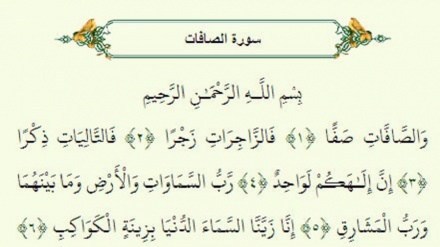 سورة الصافات
بِسْمِ اللَّـهِ الرَّحْمَـٰنِ الرَّحِيمِ
وَالصَّافَّاتِ صَفًّا ﴿١﴾ فَالزَّاجِرَاتِ زَجْرًا ﴿٢﴾ فَالتَّالِيَاتِ ذِكْرًا
﴿٣﴾ إِنَّ إِلَـٰهَكُمْ لَوَاحِدٌ ﴿٤﴾ رَّبُّ السَّمَاوَاتِ وَالْأَرْضِ وَمَا بَيْنَهُمَا
وَرَبُّ الْمَشَارِقِ ﴿٥﴾ إِنَّا زَيَّنَّا السَّمَاءَ الدُّنْيَا بِزِينَةٍ الْكَوَاكِبِ ﴿٦﴾